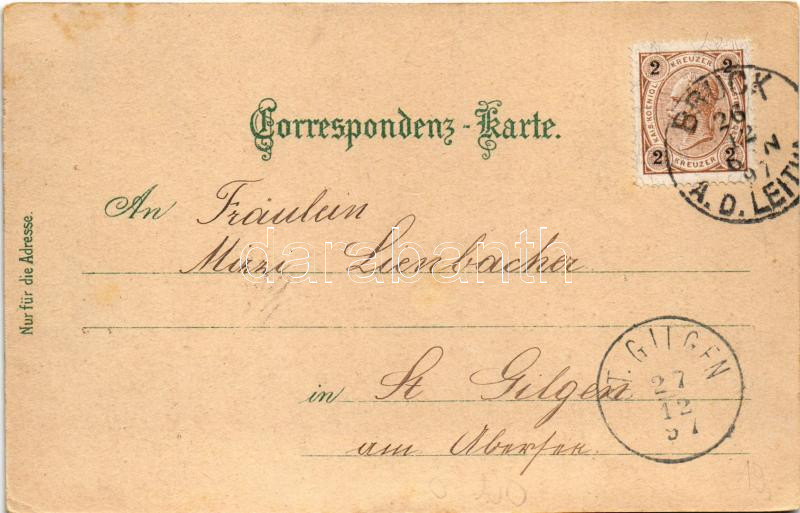 2 KREUZER 2
KAIS. KOENIGL.
2 KREUZER 2
BRUCK
26
12
6 N
97
A. D. LEITHA
Correspondenz-Karte.
An Fräulein
Mizi Lienbacher
darabanth
Nur für die Adresse.
ST. GILGEN
27
12
97
in St Gilgen
am Abersee.